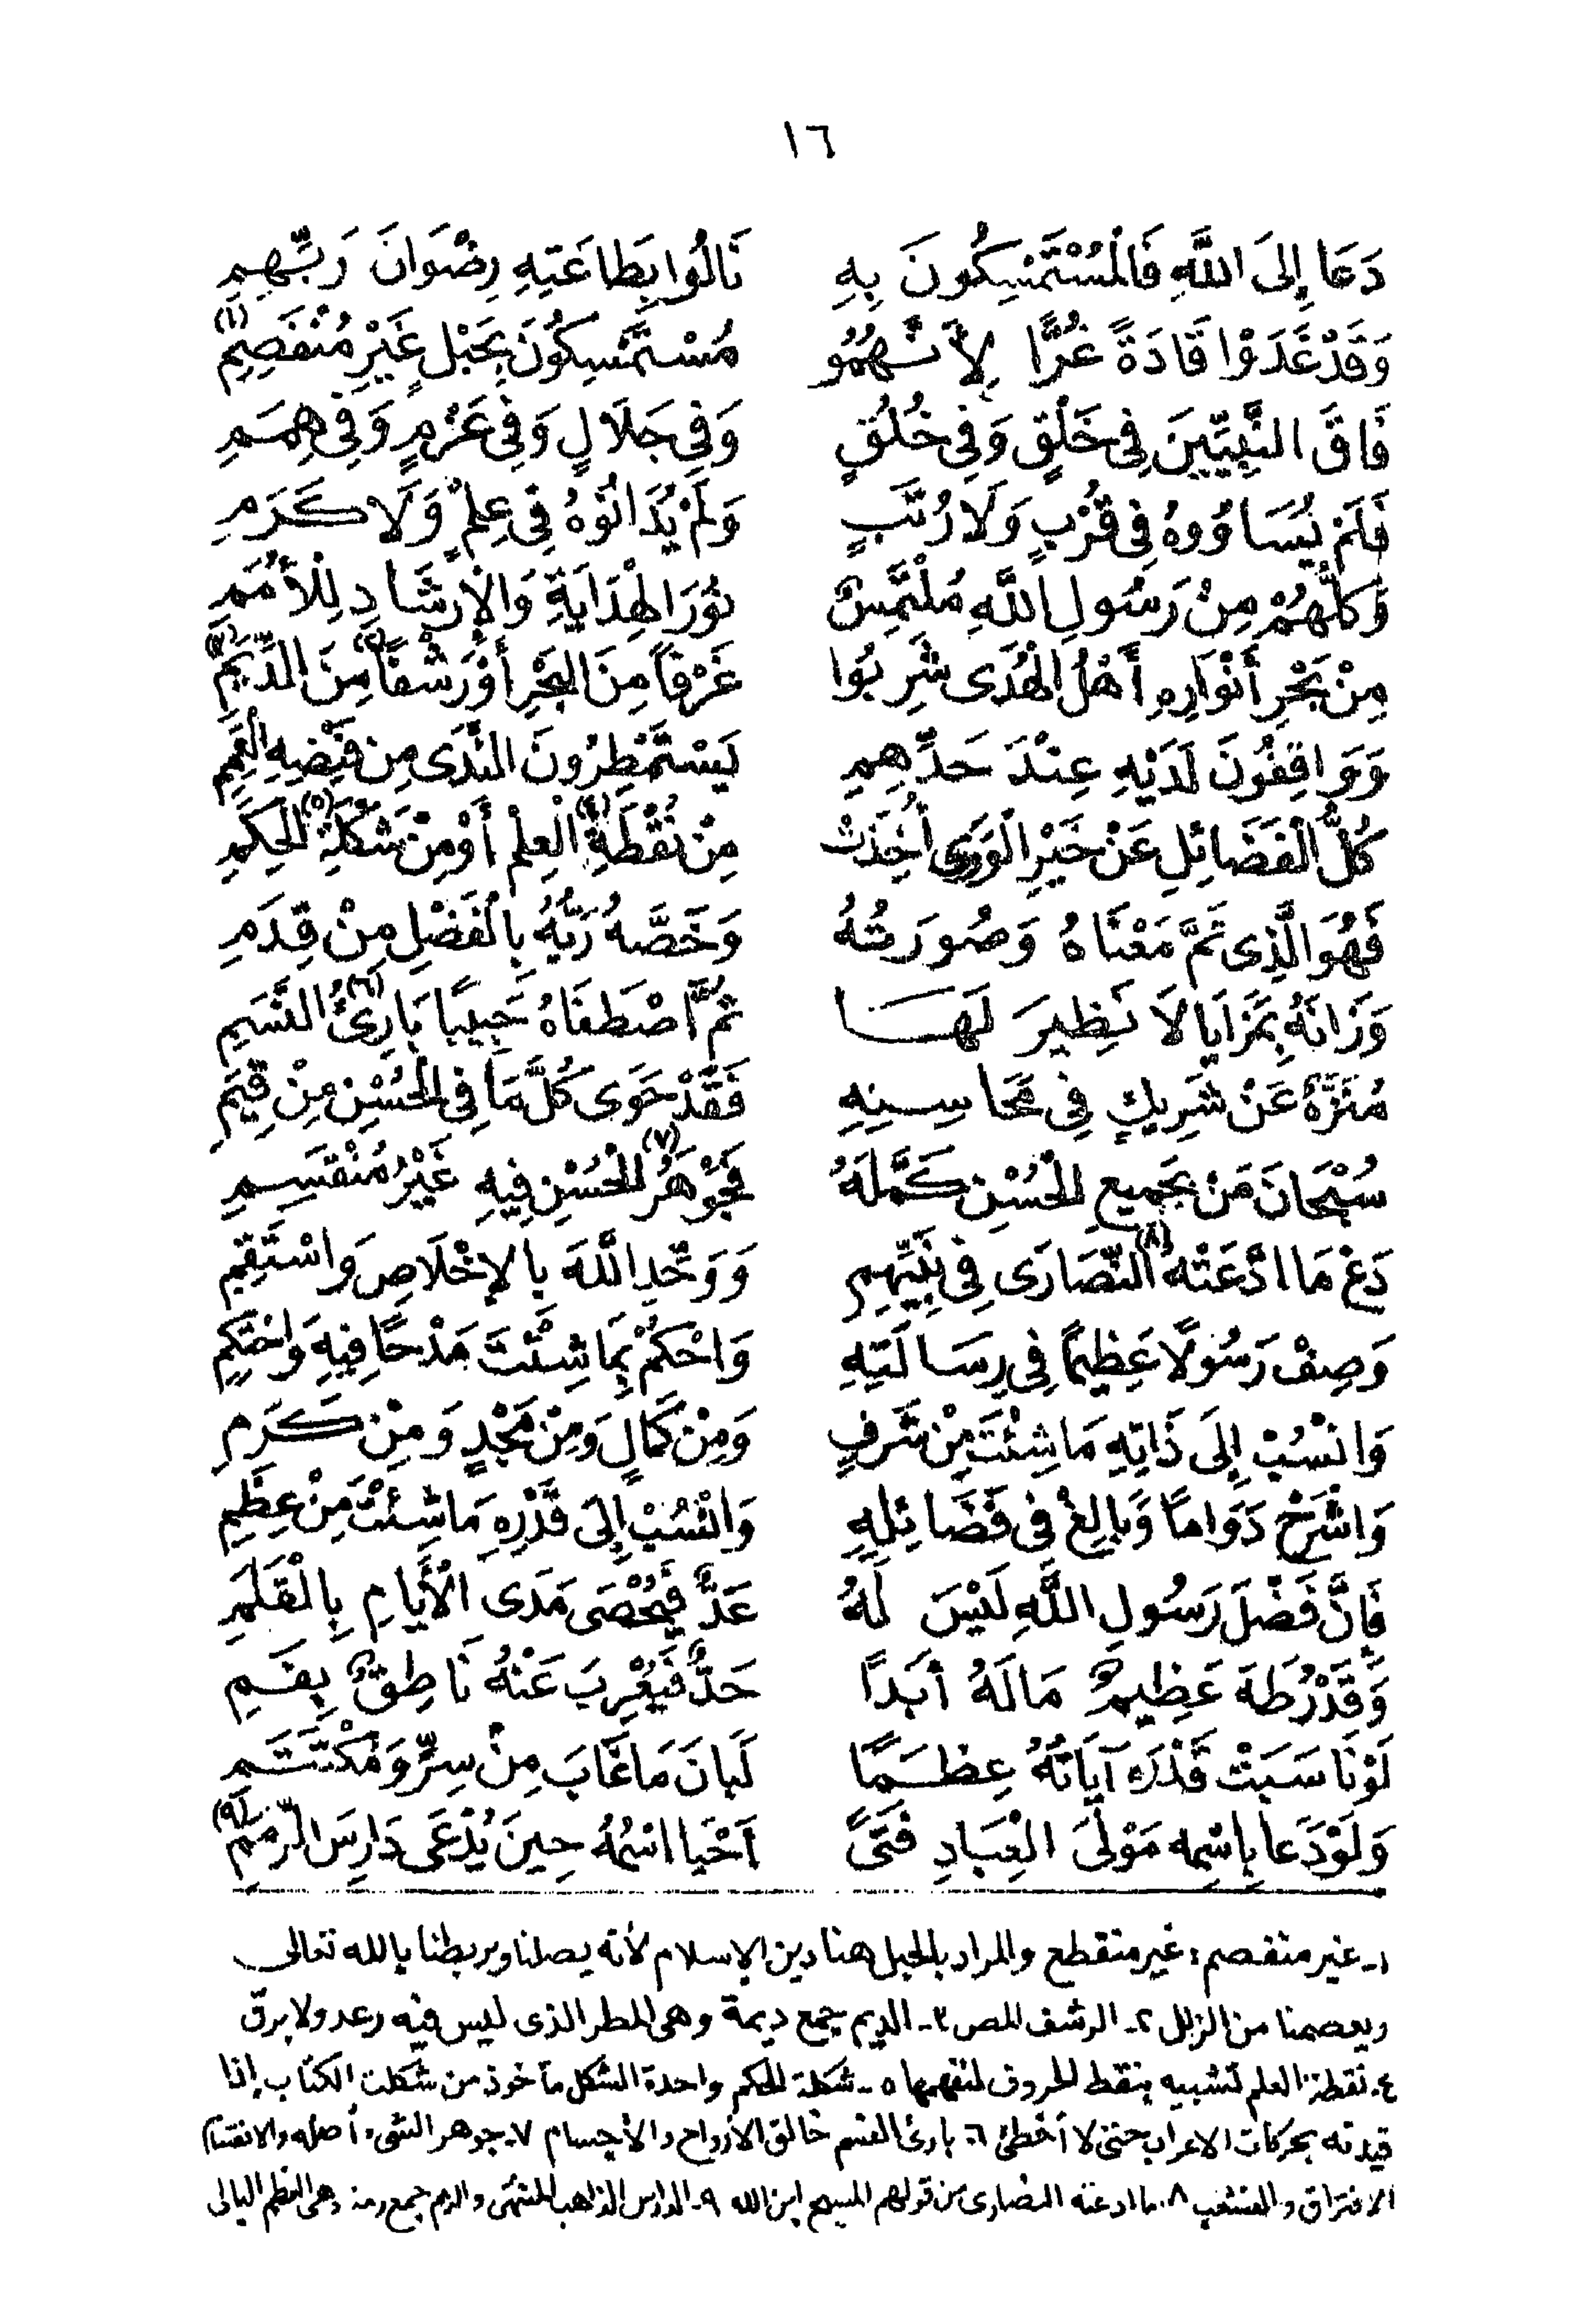 ١٦
دَعَا إِلَى اللَّهِ فَالْمُسْتَمْسِكُونَ بِهِ نَالُوا بِطَاعَتِهِ رِضْوَانَ رَبِّهِمِ
وَقَدْ غَدَوْا قَادَةً غُرًّا لِأَنَّهُمُو مُسْتَمْسِكُونَ بِحَبْلٍ غَيْرِ مُنْفَصِمِ (١)
فَاقَ النَّبِيِّينَ فِى خَلْقٍ وَفِى خُلُقٍ وَفِى جَلَالٍ وَفِى عَزْمٍ وَفِى هِمَمِ
فَلَمْ يُسَاوُوهُ فِى قُرْبٍ وَلَا رُتَبٍ وَلَمْ يُدَانُوهُ فِى عِلْمٍ وَلَا كَرَمِ
وَكُلُّهُمْ مِنْ رَسُولِ اللَّهِ مُلْتَمِسٌ نُورَ الْهِدَايَةِ وَالْإِرْشَادِ لِلْأُمَمِ
مِنْ بَحْرِ أَنْوَارِهِ أَهْلُ الْهُدَى شَرِبُوا غَرْفًا مِنَ الْبَحْرِ أَوْ رَشْفًا (٢) مِنَ الدِّيَمِ (٣)
وَوَاقِفُونَ لَدَيْهِ عِنْدَ حَدِّهِمِ يَسْتَمْطِرُونَ النَّدَى مِن فَيْضِهِ الْعَمِمِ
كُلُّ الْفَضَائِلِ عَنْ خَيْرِ الْوَرَى أُخِذَتْ مِنْ نُقْطَةِ (٤) الْعِلْمِ أَوْ مِنْ شَكْلَةِ (٥) الْحِكَمِ
فَهُوَ الَّذِى تَمَّ مَعْنَاهُ وَصُورَتُهُ وَخَصَّهُ رَبُّهُ بِالْفَضْلِ مِنْ قِدَمِ
وَزَانَهُ بِمَزَايَا لَا نَظِيرَ لَهَا ثُمَّ اصْطَفَاهُ حَبِيبًا بَارِئُ (٦) النَّسَمِ
مُنَزَّهٌ عَنْ شَرِيكٍ فِى مَحَاسِنِهِ فَقَدْ حَوَى كُلَّ مَا فِى الْحُسْنِ مِنْ قِيَمِ
سُبْحَانَ مَنْ بِجَمِيعِ الْحُسْنِ كَمَّلَهُ فَجَوْهَرُ (٧) الْحُسْنِ فِيهِ غَيْرُ مُنْقَسِمِ
دَعْ مَا ادَّعَتْهُ (٨) النَّصَارَى فِى نَبِيِّهِمِ وَوَحِّدِ اللَّهَ بِالإِخْلَاصِ وَاسْتَقِمِ
وَصِفْ رَسُولًا عَظِيمًا فِى رِسَالَتِهِ وَاحْكُمْ بِمَا شِئْتَ مَدْحًا فِيهِ وَاحْتَكِمِ
وَانْسُبْ إِلَى ذَاتِهِ مَا شِئْتَ مِنْ شَرَفٍ وَمِنْ كَمَالٍ وَمِنْ مَجْدٍ وَمِنْ كَرَمِ
وَاشْرَحْ دَوَامًا وَبَالِغْ فِى فَضَائِلِهِ وَانْسُبْ إِلَى قَدْرِهِ مَا شِئْتَ مِنْ عِظَمِ
فَإِنَّ فَضْلَ رَسُولِ اللَّهِ لَيْسَ لَهُ عَدٌّ فَيُحْصَى مَدَى الْأَيَّامِ بِالْقَلَمِ
وَقَدْرُ طَهَ عَظِيمٌ مَا لَهُ أَبَدًا حَدٌّ فَيُعْرِبَ عَنْهُ نَاطِقٌ بِفَمِ
لَوْ نَاسَبَتْ قَدْرَهُ آيَاتُهُ عِظَمًا لَبَانَ مَا غَابَ مِنْ سِرٍّ وَمُكْتَتَمِ
وَلَوْ دَعَا بِاسْمِهِ مَوْلَى الْعِبَادِ فَتًى أَحْيَا اسْمُهُ حِينَ يُدْعَى دَارِسَ الرِّمَمِ (٩)
١- غير منفصم: غير منقطع والمراد بالحبل هنا دين الإسلام لأنه يصلنا ويربطنا بالله تعالى
ويعصمنا من الزلل ٢- الرشف المص ٣- الديم جمع ديمة وهى المطر الذى ليس فيه رعد ولا برق
٤- نقطة العلم تشبيه بنقط الحروف لتفهمها ٥- شكلة الحكم واحدة الشكل مأخوذ من شكلت الكتاب إذا
قيدته بحركات الاعراب حتى لا أخطئ ٦- بارئ النسم خالق الأرواح والأجسام ٧- جوهر الشىء أصله والانقسام
الافتراق والتشعب ٨- ما ادعته النصارى من قولهم المسيح ابن الله ٩- الدارس الذاهب المنتهى والرمم جمع رمة وهى العظم البالى